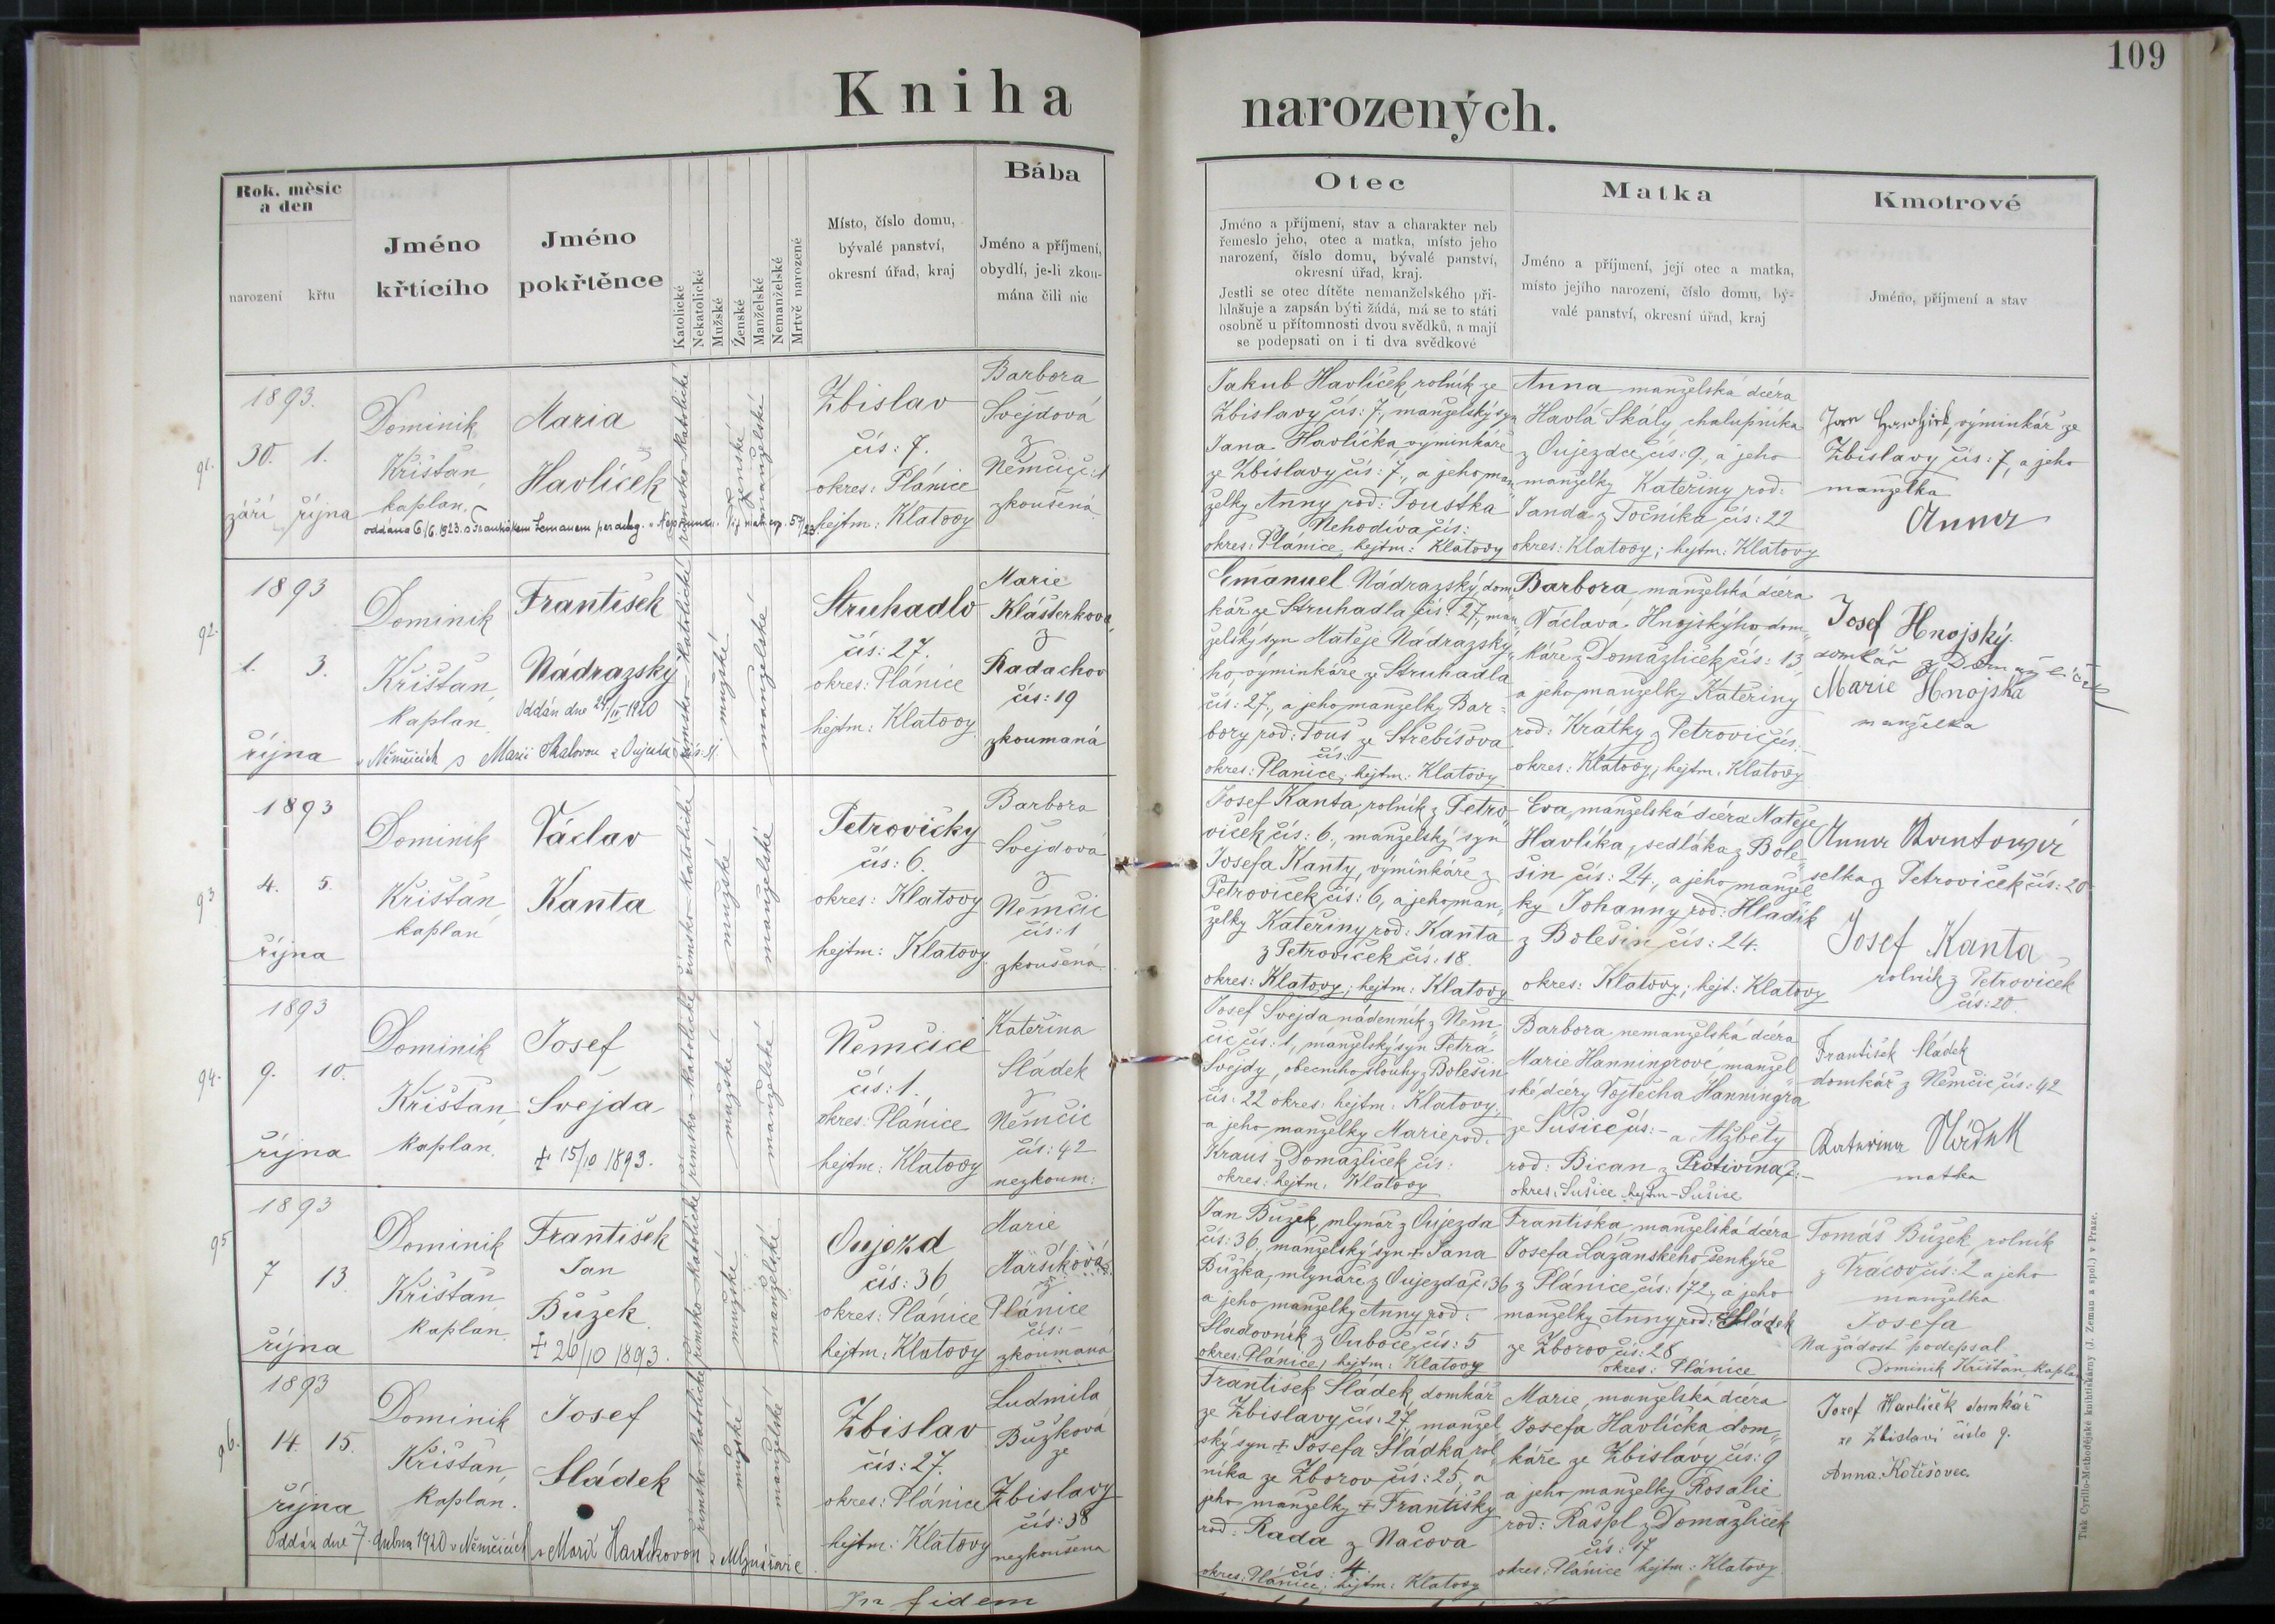 109
Kniha
narozených.
Rok, měsíc
a den
narození
křtu
Jméno
křtícího
Jméno
pokřtěnce
Katolické
Nekatolické
Mužské
Ženské
Manželské
Nemanželské
Mrtvě narozené
Místo, číslo domu,
bývalé panství,
okresní úřad, kraj
Bába
Jméno a příjmení,
obydlí, je-li zkou-
mána čili nic
Otec
Jméno a příjmení, stav a charakter neb
řemeslo jeho, otec a matka, místo jeho
narození, číslo domu, bývalé panství,
okresní úřad, kraj.
Jestli se otec dítěte nemanželského při-
hlašuje a zapsán býti žádá, má se to státi
osobně u přítomnosti dvou svědků, a mají
se podepsati on i ti dva svědkové
Matka
Jméno a příjmení, její otec a matka,
místo jejího narození, číslo domu, bý-
valé panství, okresní úřad, kraj
Kmotrové
Jméno, příjmení a stav
91.
1893.
30. 1.
září října
Dominik
Křištan,
kaplan.
Maria
Havlíček
oddána 6/6. 1923. s Františkem Zemanem
římsko-katolické
ženské
manželské
Zbislav
čís: 7.
okres: Plánice
hejtm: Klatovy
Barbora
Švejdová
z
Němčic č:1
zkoušená
Jakub Havlíček, rolník ze
Zbislavy čís: 7, manželský syn
Jana Havlíčka, výminkáře
ze Zbislavy čís: 7, a jeho man„
želky Anny rod: Touštka
z Nehodíva čís:
okres: Plánice, hejtm: Klatovy
Anna manželská dcéra
Havla Skály, chalupníka
z Oujezdce čís: 9., a jeho
manželky Kateřiny rod:
Janda z Točníka čís: 22
okres: Klatovy; hejtm: Klatovy
Jan Havlíček, výminkář ze
Zbislavy čís: 7, a jeho
manželka
Anna
92.
1893
1. 3.
října
Dominik
Křištan,
kaplan.
František
Nádrazský
Oddán dne 24/II 1920
v Němčicích s Marií Skalovou z Oujezda čís: 11.
římsko-katolické
mužské
manželské
Struhadlo
čís: 27.
okres: Plánice
hejtm: Klatovy
Marie
Klášterkova,
z
Radachov
čís: 19
zkoumaná
Emanuel Nádrazský, dom„
kář ze Struhadla čís: 27, man„
želský syn Matěje Nádrazský„
ho výminkáře ze Struhadla
čís: 27, a jeho manželky Bar=
bory rod: Tous ze Střebišova
čís:
okres: Planice; hejtm: Klatovy
Barbora, manželská dcéra
Václava Hnojskýho dom„
káře z Domažliček čís: 13
a jeho manželky Kateřiny
rod: Krátky z Petrovic čís:
okres: Klatovy; hejtm: Klatovy
Josef Hnojský
domkář z Domažliček
Marie Hnojska
manželka
93
1893
4. 5.
října
Dominik
Křištan,
kaplan
Václav
Kanta
římsko-katolické
mužské
manželské
Petrovičky
čís: 6.
okres: Klatovy
hejtm: Klatovy
Barbora
Švejdová
z
Němčic
čís: 1
zkoušená
Josef Kanta, rolník z Petro„
viček čís: 6., manželský syn
Josefa Kanty, výminkáře z
Petroviček čís: 6, a jeho man„
želky Kateřiny rod: Kanta
z Petroviček čís: 18.
okres: Klatovy; hejtm: Klatovy
Eva, manželská dcéra Matěje
Havlíka, sedláka z Bole„
šin čís: 24., a jeho manžel„
ky Johanny rod: Hladík
z Bolešin čís: 24.
okres: Klatovy; hejt: Klatovy
Anna Kantová
selka z Petroviček čís: 20
Josef Kanta
rolník z Petroviček
čís: 20.
94.
1893
9. 10.
října
Dominik
Křištan
kaplan.
Josef
Švejda
† 15/10 1893.
římsko-katolické
mužské
manželské
Němčice
čís: 1.
okres: Plánice
hejtm: Klatovy
Kateřina
Sládek
z
Němčic
čís: 42
nezkoum:
Josef Švejda nádenník z Něm„
čic čís: 1, manželský syn Petra
Švejdy, obecního slouhy z Bolešin
čís: 22 okres: hejtm: Klatovy,
a jeho manželky Marie rod:
Kraus z Domažliček čís:
okres: hejtm: Klatovy
Barbora, nemanželská dcéra
Marie Hanningrové, manžel„
ské dcéry Vojtěcha Hanningra
ze Sušice čís: - a Alžběty
rod: Bican z Protivína č:-
okres: Sušice hejtm - Sušice
František Sládek
domkář z Němčic čís: 42
Kateřina Sládek
matka
95
1893
7 13.
října
Dominik
Křištan
kaplan.
František
Jan
Bůzek
† 26/10 1893.
římsko-katolické
mužské
manželské
Oujezd
čís: 36
okres: Plánice
hejtm: Klatovy
Marie
Maršíková
z
Plánice
čís: -
zkoumaná
Jan Bůzek, mlynář z Oujezda
čís: 36, manželský syn † Jana
Bůzka, mlynáře z Oujezda č: 36
a jeho manželky Anny rod:
Sladovník z Ouboče čís: 5
okres: Plánice; hejtm: Klatovy
Františka, manželská dcéra
Josefa Lažanského šenkýře
z Plánice čís: 172, a jeho
manželky Anny rod: Sládek
ze Zborov čís: 28
okres: Plánice
Tomáš Bůzek, rolník
z Vrácov čís: 2 a jeho
manželka
Josefa
Na žádost podepsal
Dominik Křištan, kaplan
96.
1893
14. 15.
října
Dominik
Křištan,
kaplan.
Josef
Sládek
Oddán dne 7. dubna 1920 v Němčicích s Marií Havlíkovou z Mlynářovic.
římsko-katolické
mužské
manželské
Zbislav
čís: 27.
okres: Plánice
hejtm: Klatovy
Ludmila
Bůzková
ze
Zbislavy
čís: 38
nezkoušena
František Sládek, domkář
ze Zbislavy čís: 27, manžel„
ský syn † Josefa Sládka, rol„
níka ze Zborov čís: 25, a
jeho manželky † Františky
rod: Rada z Načova
čís: 4.
okres: Plánice, hejtm: Klatovy
Marie, manželská dcéra
Josefa Havlíčka, dom„
káře ze Zbislavy čís: 9
a jeho manželky Rosalie
rod: Raspl z Domažliček
čís: 17
okres: Plánice hejtm: Klatovy.
Jozef Havlíček domkář
ze Zbislavi číslo 9.
Anna Kotišovec
In fidem
Tisk Cyrillo-Methodějské knihtiskárny (J. Zeman a spol.) v Praze.